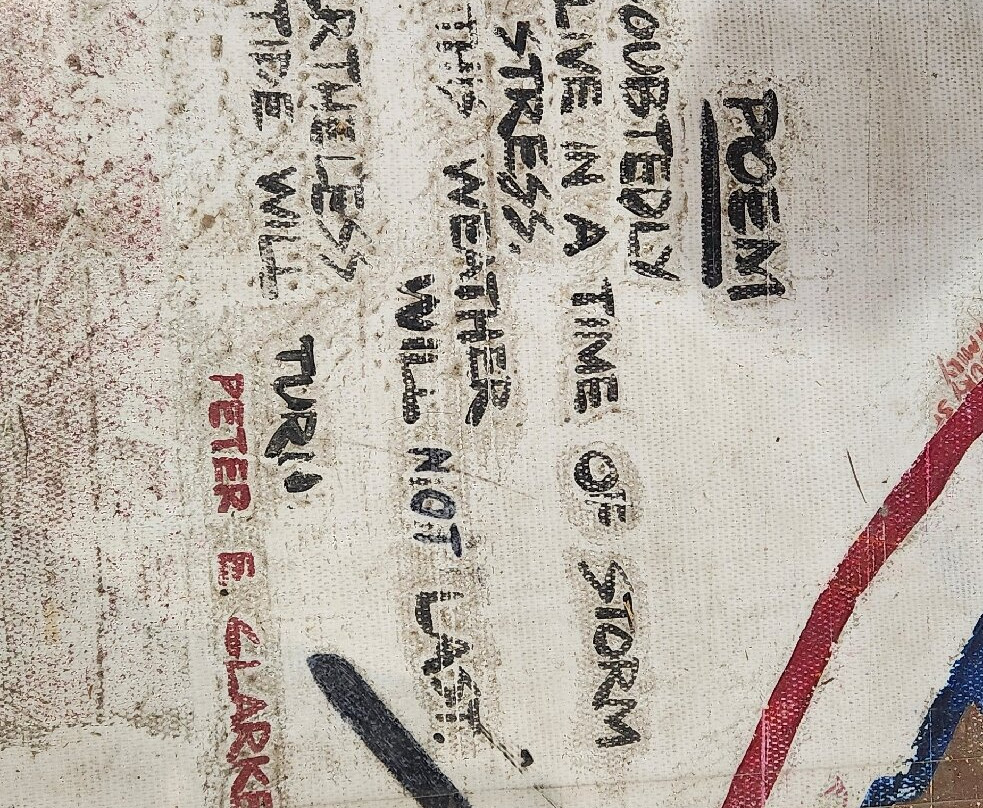 POEM
OUBTEDLY
LIVE IN A TIME OF STORM
STRESS.
THIS WEATHER
WILL NOT LAST.
RTHELESS
TIDE WILL TURN
PETER E. CLARKE